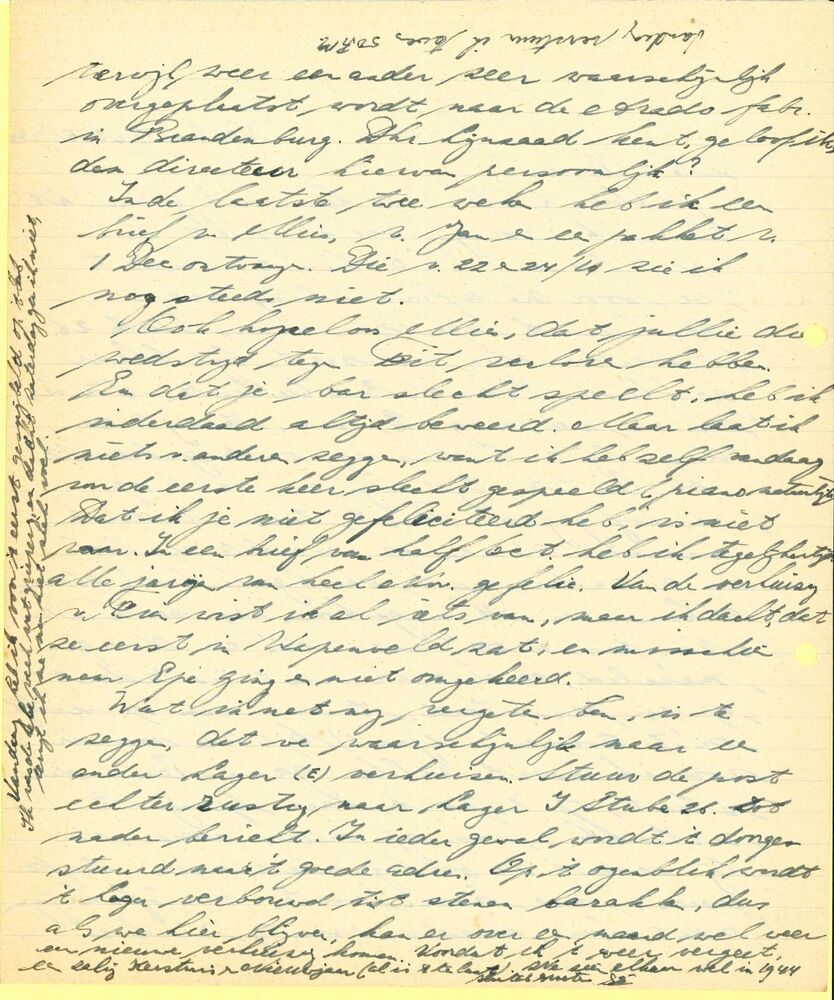 Vandaag verstuur ik twee 50 RM
terwijl weer een ander zeer waarschijnlijk
overgeplaatst wordt naar de Arado fabr.
in Brandenburg. Dhr Lijnzaad kent, geloof ik,
den directeur hiervan persoonlijk?
In de laatste twee weken heb ik een
brief v. Mies, v. Jan en een pakket v.
1 Dec ontvange. Die v. 22 e 24/10 zie ik
nog steeds niet.
Ook hopeloos Mies, dat jullie die
wedstrijd tege verlore hebben.
En dat je bar slecht speelt, heb ik
inderdaad altijd beweerd. Maar laat ik
niets v. andere zegge, want ik heb zelf vandaag
voor de eerste keer slecht gespeeld (piano natuurlijk)
Dat ik je niet gefeliciteerd heb, is niet
waar. In een brief van half Oct. heb ik tegelijkertijd
alle jarige van heel Nov. gefelic. Van de verhuizing
v. wist ik al iets van, maar ik dacht, dat
ze eerst in Wapenveld zat, en misschien
naar Epe ging en niet omgekeerd.
Wat ik net nog vergete ben, is te
zegge, dat we waarschijnlijk naar een
ander Lager (E) verhuizen. Stuur de post
echter rustig naar Lager I Stube 26. tot
nader bericht. In ieder geval wordt 't doorge-
stuurd naar 't goede adres. Op 't ogenblik wordt
't Lager verbouwd tot stenen barakke, dus
als we hier blijven, kan er over een maand wel weer
een nieuwe verhuizing komen. Voordat ik 't weer vergeet,
een zalig Kerstmis e Nieuwjaar (al is 't te laat). We zien elkaar wel in 1944
Vandaag heb ik voor 't eerst gevoetbald op 't